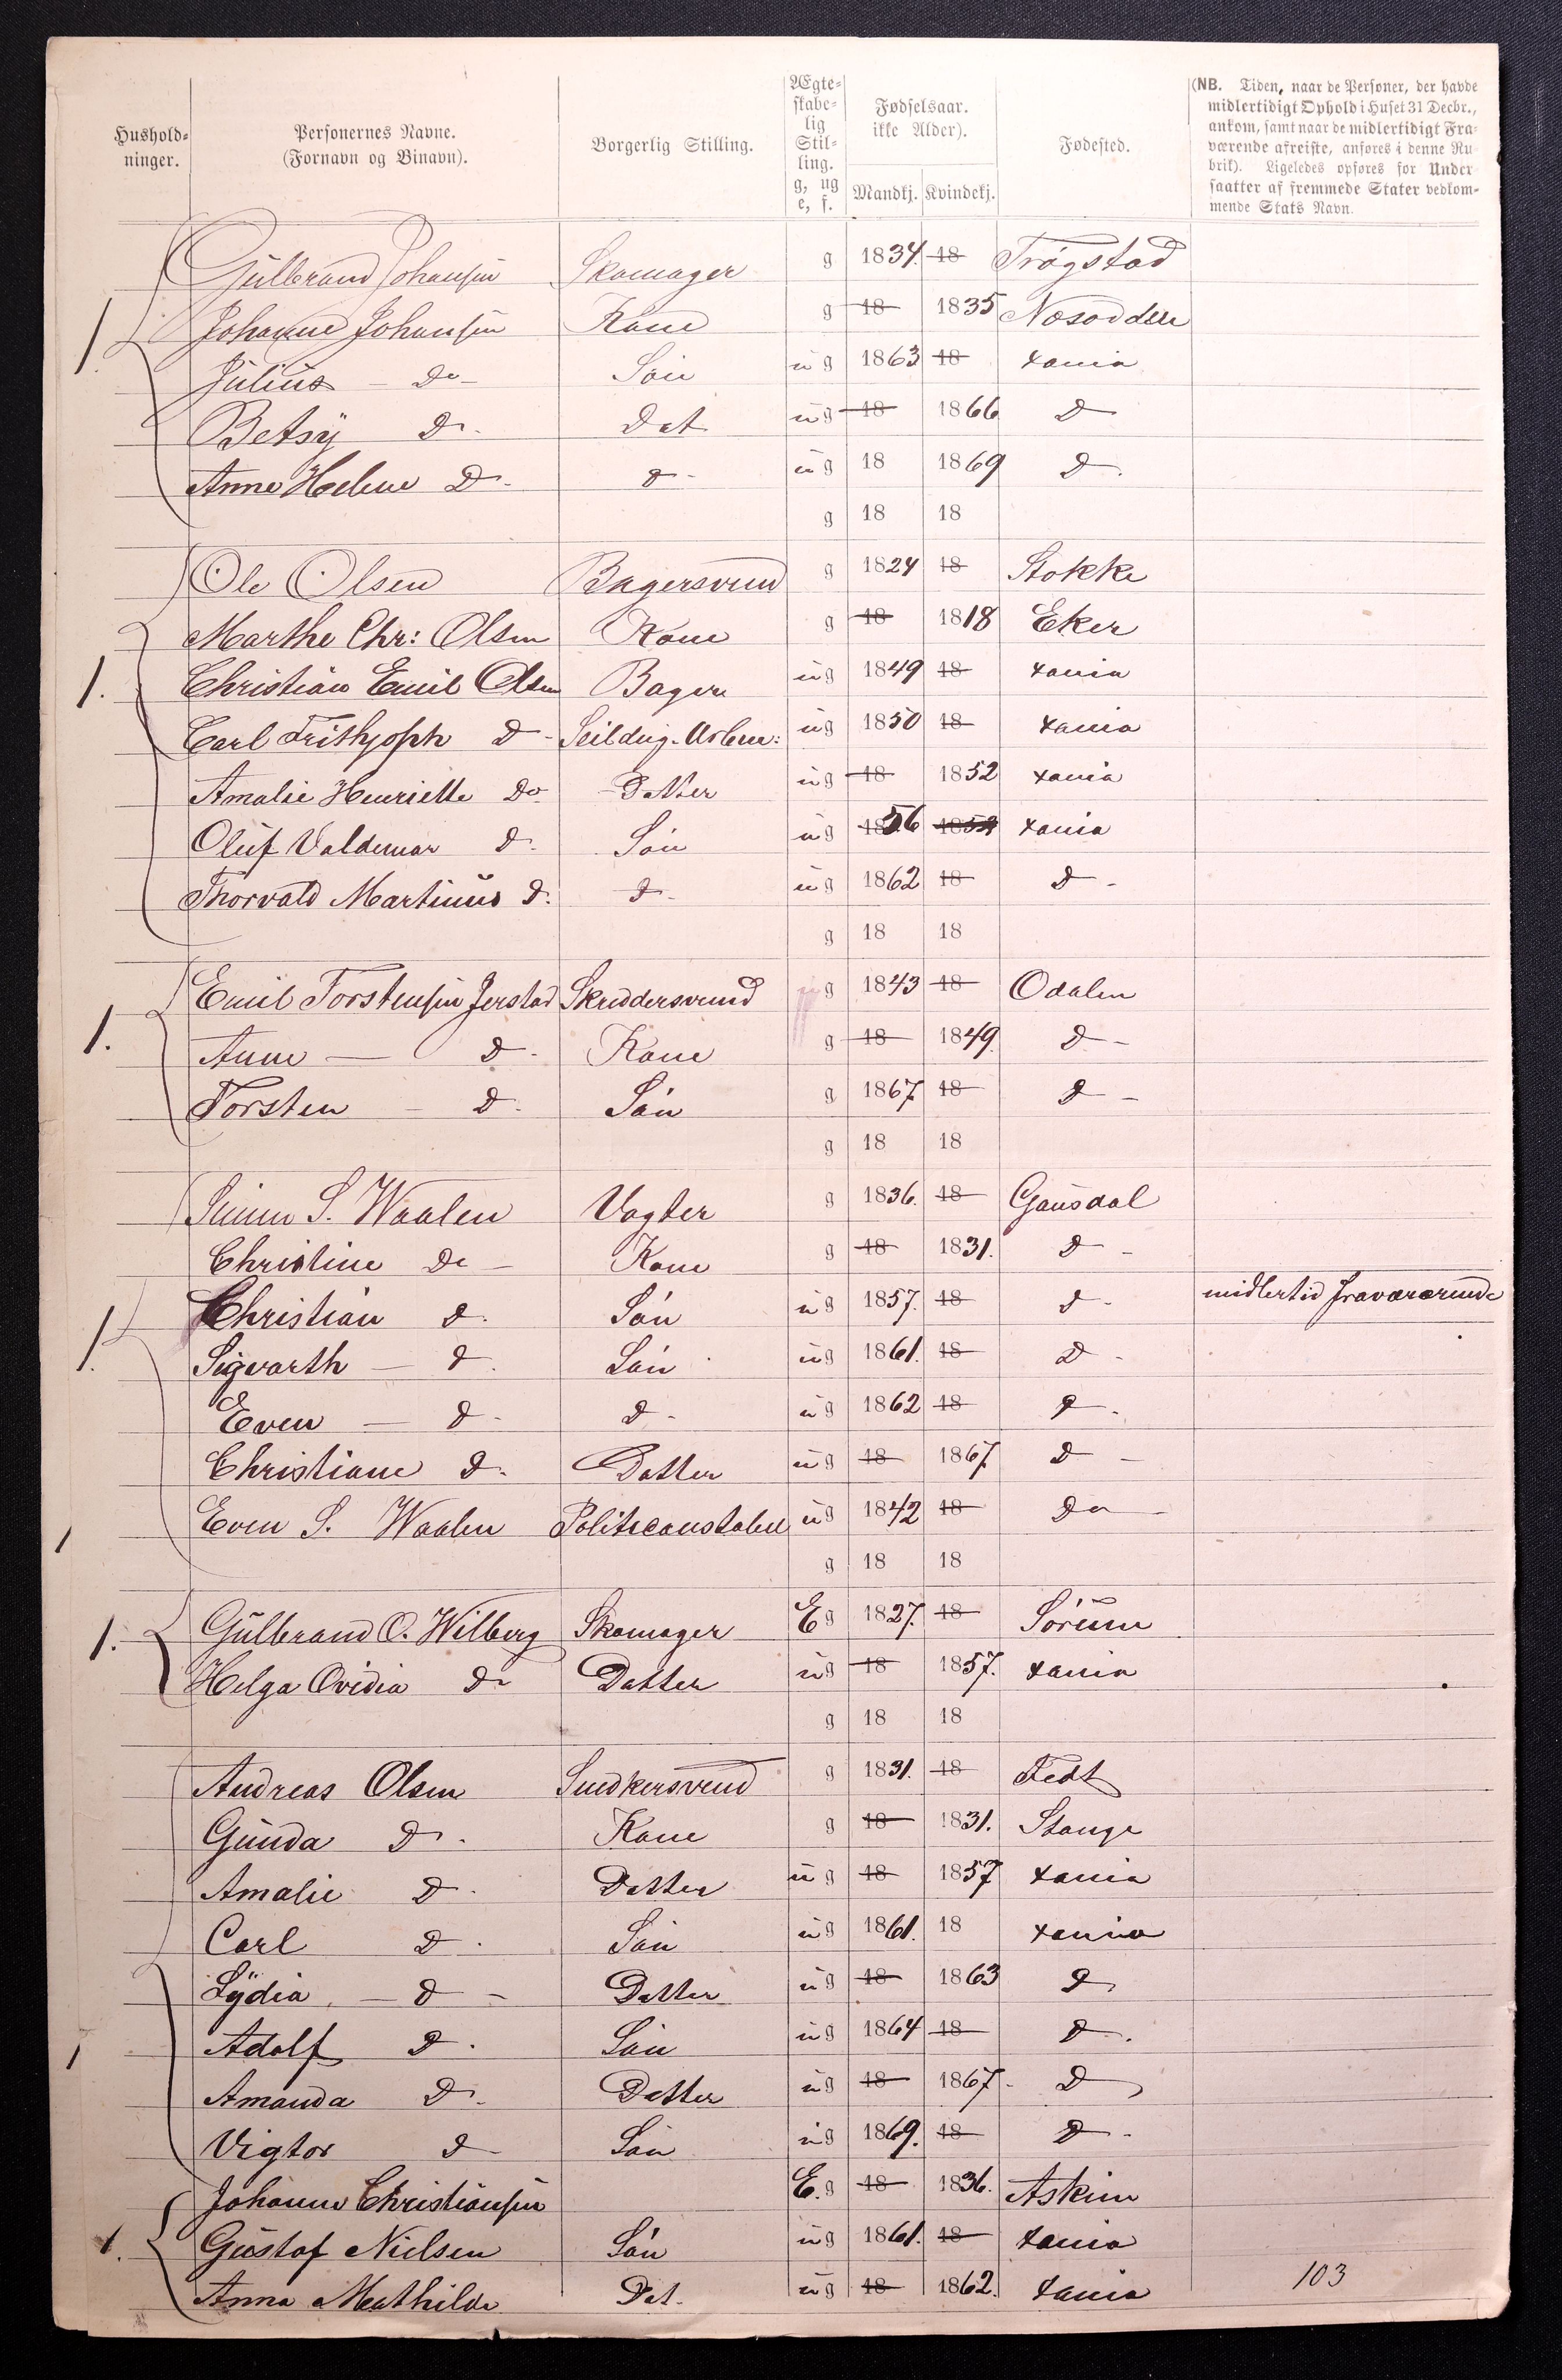 Hushold-
ninger.
Personernes Navne.
(Fornavn og Binavn).
Borgerlig Stilling.
Ægte-
skabe-
lig
Stil-
ling.
g, ug
e, f.
Fødselsaar.
ikke Alder).
Mandkj. Kvindekj.
Fødested.
(NB. Tiden, naar de Personer, der havde
midlertidigt Ophold i Huset 31 Decbr.,
ankom, samt naar de midlertidigt Fra-
værende afreiste, anføres i denne Ru-
brik). Ligeledes opføres for Under-
saatter af fremmede Stater vedkom-
mende Stats Navn.
Gulbrand Johansen Skomager g 1834. 18 Trøgstad
1 Johanne Johansen Kone g 18 1835 Næsodden
Julius - Do - Søn ug 1863 18 xania
Betsy D. Dat ug 18 1866 D
Anne Helene D. D - ug 18 1869 D.
g 18 18
Ole Olsen Bagersvend g 1824 18 Stokke
Marthe Chr: Olsen Kone g 18 1818 Eker
1. Christian Emil Olsen Bager ug 1849 18 xania
Carl Frithjoph D - Seildug. Arbeu: ug 1850 18 xania
Amalie Henriette Do Datter ug 18 1852 xania
Oluf Valdemar D. Søn ug 1856 1852 xania
Thorvald Martinus D. D - ug 1862 18 D -
g 18 18
Emil Torstensen Jerstad Skreddersvend g 1843 18 Odalen
1. Anne - D. Kone g 18 1849. D -
Torsten - D. Søn g 1867 18 D -
g 18 18
Simen S. Waalen Vagter g 1836. 18 Gausdal
Christine Do - Kone g 18 1831. D -
1. Christian D. Søn ug 1857. 18 D - midlertid fraværærende
Sigvarth - D. Søn ug 1861. 18 D -
Even - D - D - ug 1862 18 D.
Christiane D. Datter ug 18 1867 D -
1 Even S. Waalen Politiconstabel ug 1842 18 Do -
g 18 18
1. Gulbrand O. Wilberg Skomager Eg 1827. 18 Sørum
Helga Ovidia Do Datter ug 18 1857. xania
g 18 18
Andreas Olsen Snedkersvend g 1831. 18 Fedt
Gunda D. Kone g 18 1831. Stange
Amalie D. Datter ug 18 1857 xania
Carl D. Søn ug 1861. 18 xania
Lydia - D - Datter ug 18 1863 D
1 Adolf D. Søn ug 1864 18 D.
Amanda D. Datter ug 18 1867 - D
Vigtor D Søn ug 1869. 18 D -
Johanne Christiansen E.g 18 1836. Askim
1. Gustaf Nielsen Søn ug 1861. 18 xania
Anna Mathilde Dat. ug 18 1862. xania
103